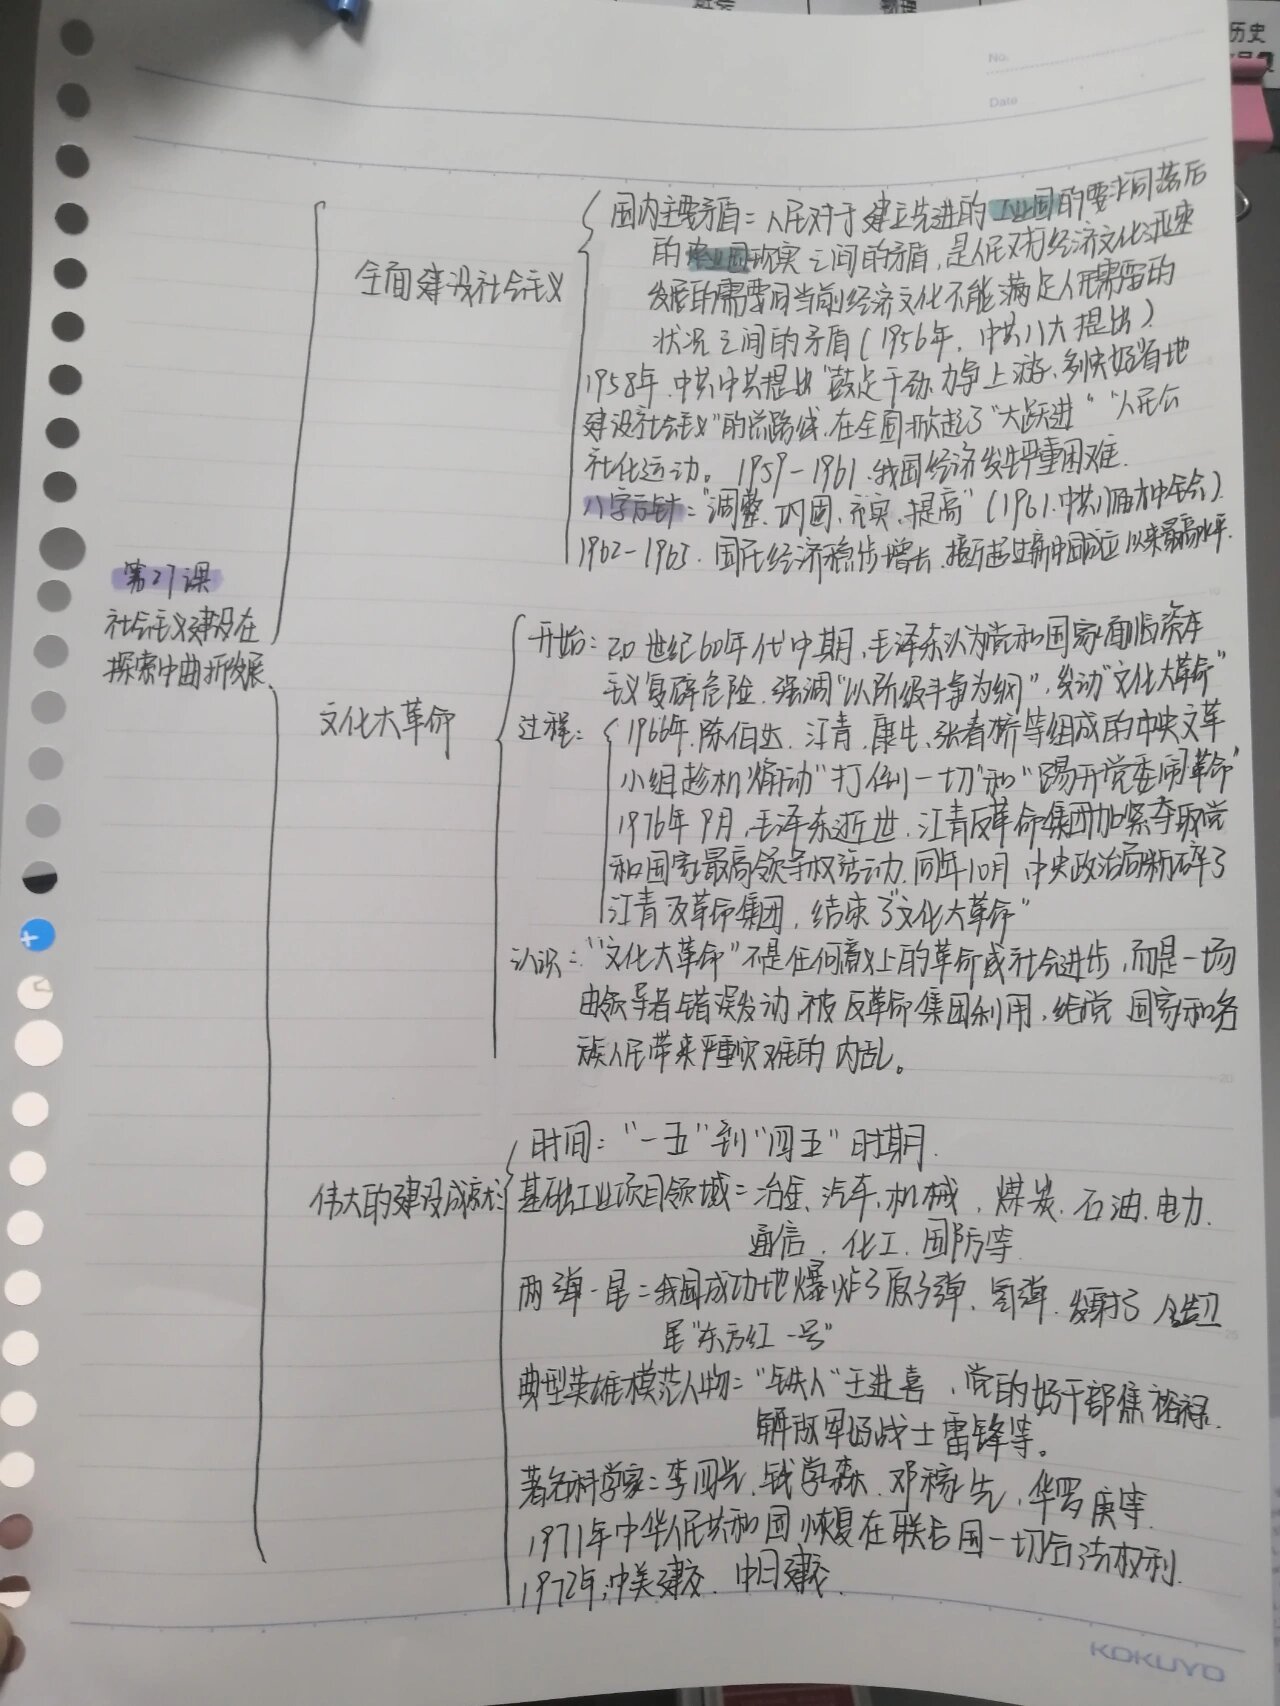 历史
No.
Date
第27课
社会主义建设在
探索中曲折发展
全面建设社会主义
国内主要矛盾：人民对于建立先进的工业国的要求同落后
的农业国现实之间的矛盾，是人民对于经济文化迅速
发展的需要同当前经济文化不能满足人民需要的
状况之间的矛盾（1956年，中共八大提出）
1958年，中共中共提出"鼓足干劲、力争上游、多快好省地
建设社会主义"的总路线，在全国掀起了"大跃进""人民公
社化运动。1959-1961，我国经济发生严重困难.
八字方针："调整、巩固、充实、提高"（1961，中共八届九中全会）
1962-1965，国民经济稳步增长，接近超过新中国成立以来最高水平.
文化大革命
开始：20世纪60年代中期，毛泽东认为党和国家面临资本
主义复辟危险，强调"以阶级斗争为纲"，发动"文化大革命"
过程：
1966年，陈伯达、江青、康生、张春桥等组成的中央文革
小组趁机煽动"打倒一切"和"踢开党委闹革命"
1976年9月，毛泽东逝世，江青反革命集团加紧夺取党
和国家最高领导权活动，同年10月，中央政治局粉碎了
江青反革命集团，结束了"文化大革命"
认识："文化大革命"不是任何意义上的革命或社会进步，而是一场
由领导者错误发动，被反革命集团利用，给党 国家和各
族人民带来严重灾难的内乱。
伟大的建设成就：
时间："一五"到"四五"时期.
基础工业项目领域：冶金、汽车、机械、煤炭、石油、电力、
通信、化工、国防等.
两弹一星：我国成功地爆炸了原子弹、氢弹，发射了人造卫
星"东方红一号"
典型英雄模范人物："铁人"王进喜、党的好干部焦裕禄、
解放军好战士雷锋等。
著名科学家：李四光、钱学森、邓稼先、华罗庚等.
1971年中华人民共和国恢复在联合国一切合法权利.
1972年，中美建交、中日建交.
KOKUYO